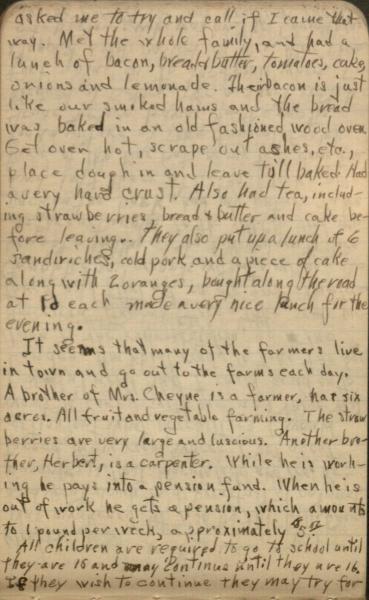 asked me to try and call if I came that
way. Met the whole family, and had a
lunch of bacon, bread & butter, tomatoes, cake,
onions and lemonade. Their bacon is just
like our smoked hams and the bread
was baked in an old fashioned wood oven.
Get oven hot, scrape out ashes, etc.,
place dough in and leave till baked. Had
a very hard crust. Also had tea, includ-
ing strawberries, bread & butter and cake be-
fore leaving. They also put up a lunch of 6
sandwiches, cold pork and a piece of cake
along with 2 oranges, bought along the road
at 1d each made a very nice lunch for the
evening.
It seems that many of the farmers live
in town and go out to the farms each day.
A brother of Mrs. Cheyne is a farmer, has six
acres. All fruit and vegetable farming. The straw
berries are very large and luscious. Another bro-
ther, Herbert, is a carpenter. While he is work-
ing he pays into a pension fund. When he is
out of work he gets a pension, which amounts
to 1 pound per week, approximately
All children are required to go to school until
they are 15 and may continue until they are 16.
If they wish to continue they may try for